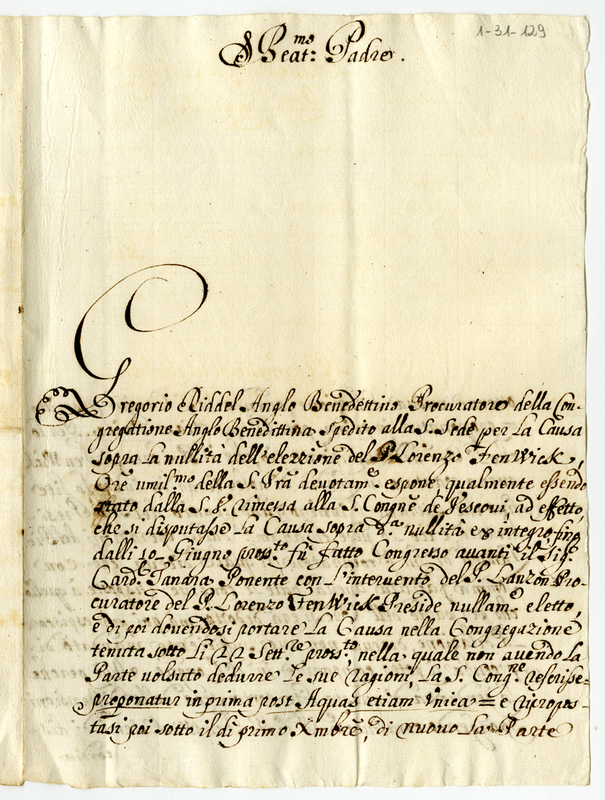 1-31-129
Beat:mo Padre.
Gregorio Riddel Anglo Benedettino Procuratore della Con-
gregatione Anglo Benedittina spedito alla S. Sede per la Causa
sopra la nullità dell'elezzione del P. Lorenzo Fenwick,
Ore umil.mo della S. Vra devotam.e espone, qualmente essendo
stato dalla S. S. rimessa alla S. Congne de Vescovi, ad effetto,
che si disputasse la Causa sopra d.a nullità ex integro fino
dalli 10. Giugno pross.to fù fatto Congresso avanti il Sig.
Card.e Tanara Ponente con l'intervento del P. Lanzon Pro-
curatore del P. Lorenzo Fenwick Preside nullam.e eletto,
e di poi dovendosi portare la Causa nella Congregazione
tenuta sotto li 22 Sett.re pross.to, nella quale non avendo la
Parte volsuto dedurre le sue ragioni, la S. Cong.ne rescrisse
proponatur in prima post Aquas etiam Unica = e ripropos-
tasi poi sotto il di primo Xmbre, di nuovo la Parte